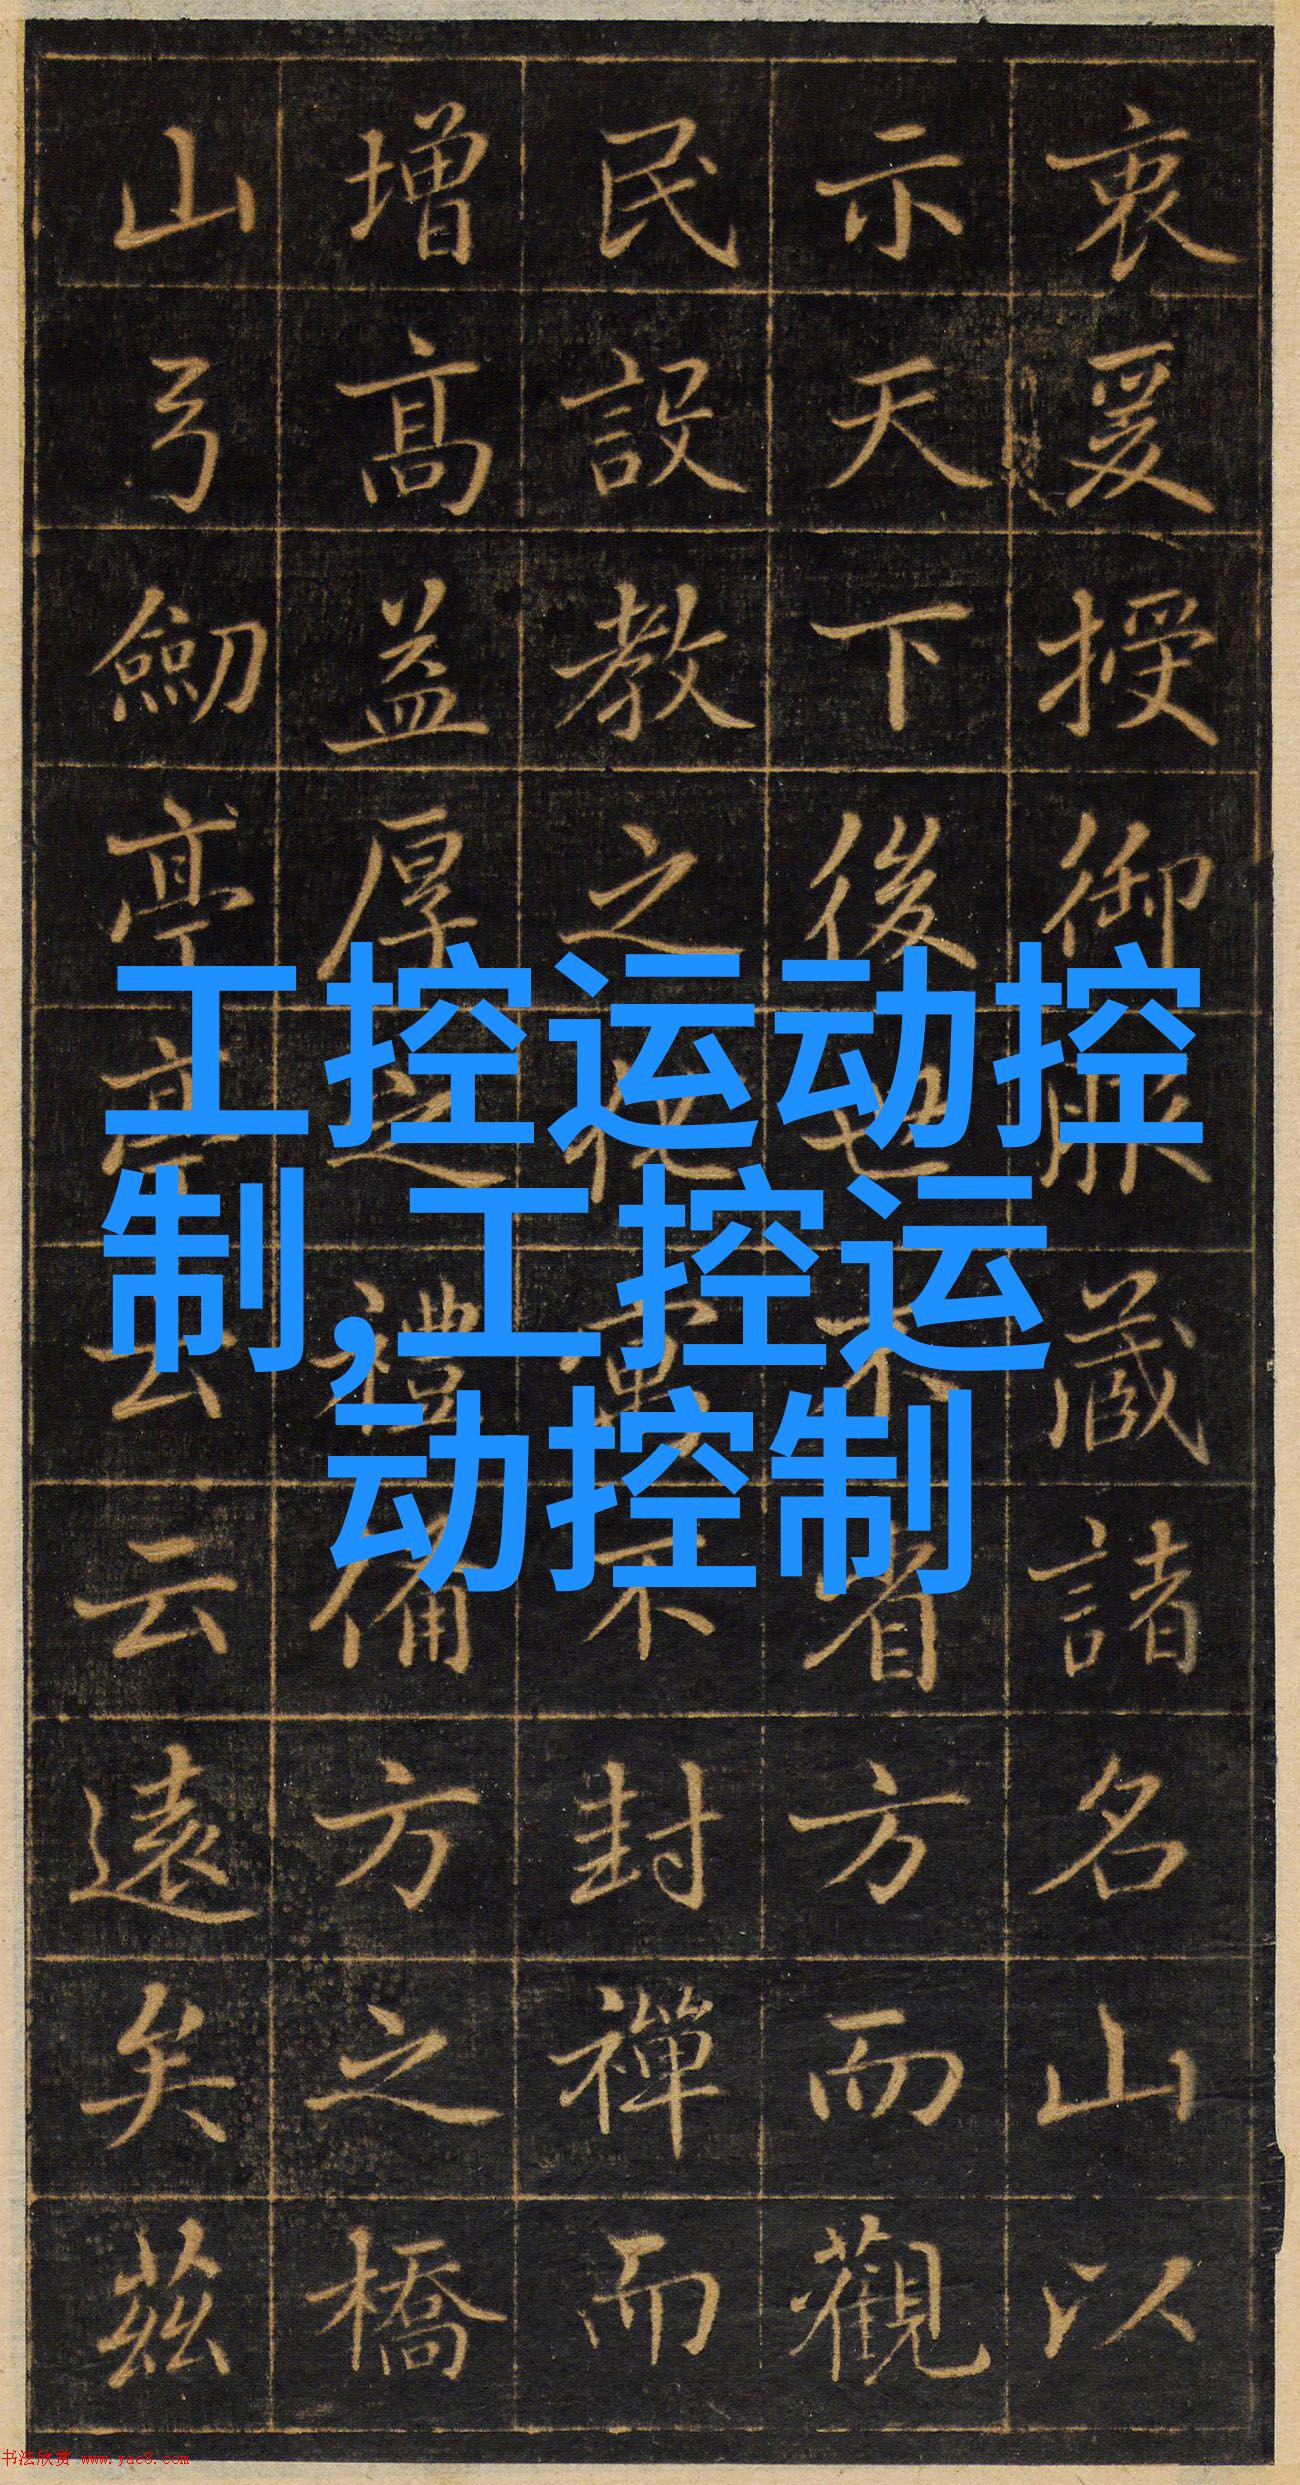 衷爰授御藏諸名山以
示天下後也不省方而觀
民設教之化不封禪而
增高益厚之禮備方之橋
山弓劒亭亭云云遠矣茲
工控运动控
制,工控运
动控制
书法欣赏 www.yac8.com